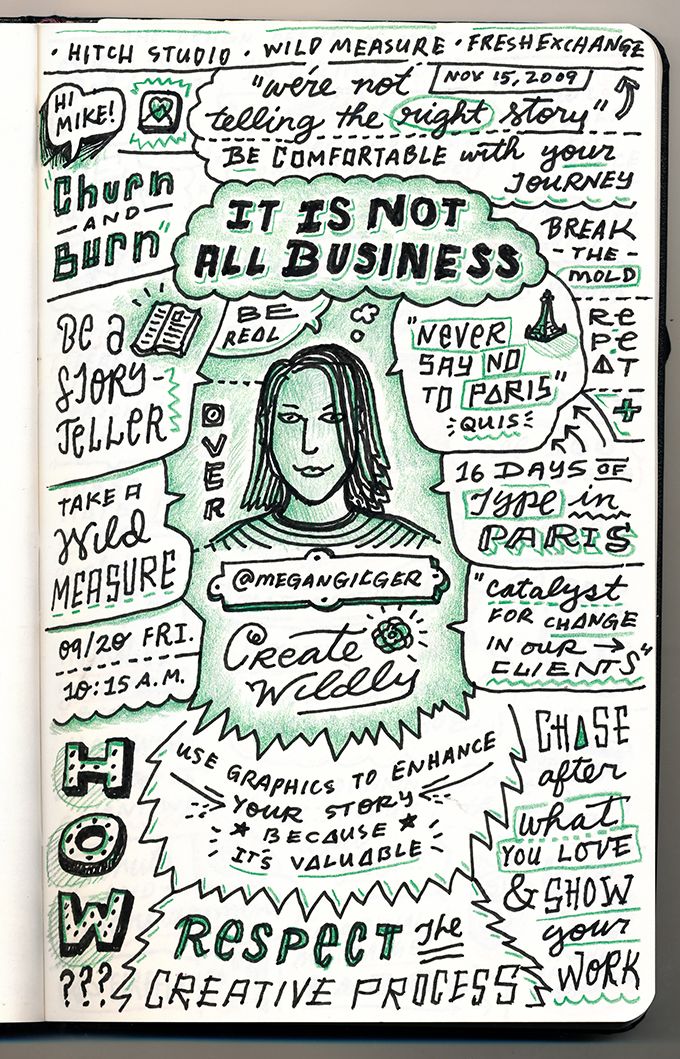 · HITCH STUDIO · WILD MEASURE · FRESH EXCHANGE
HI
MIKE!
"we're not
NOV 15, 2009
telling the right story"
BE COMFORTABLE with your
JOURNEY
"Churn
— AND —
Burn"
IT IS NOT
ALL BUSINESS
BREAK
- THE -
MOLD
BE A
STORY-
TELLER
BE
REAL
"NEVER
SAY NO
TO PARIS"
QUIS
REPEAT
+
OVER
TAKE A
Wild
MEASURE
16 DAYS OF
Type in
PARIS
@MEGANGILGER
"Catalyst
FOR CHANGE
IN OUR →
CLIENTS"
09/20 FRI.
10:15 A.M.
Create
Wildly
HOW
???
USE GRAPHICS TO ENHANCE
YOUR STORY
* BECAUSE *
IT'S VALUABLE
CHASE
after
what
YOU LOVE
& SHOW
your
WORK
RESPECT the
CREATIVE PROCESS